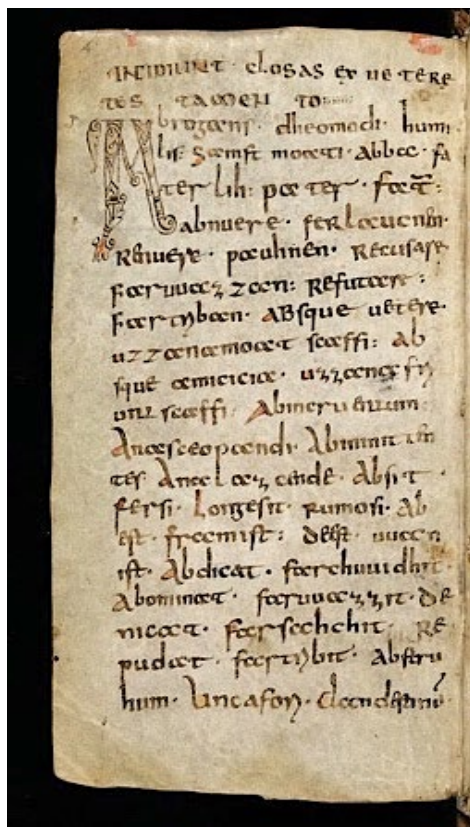 INCIPIUNT CLOSAS EX VETERE
TES TAMEN TO
Abrogans. dheomodi. humi
lis: Samft moati. Abba. fa
ter lih: pater. fat̄:
abnuere. ferlaucnen.
Renuere. pauhnen. Recusare
Faruuazzan: Refutare:
Fartriban. ABsque uetere.
uzzana moat scaffi: Ab
sque amicicia. uzzana fri
unt scaffi. Abineruenum
Anasceopandi. Abinnitin
tes. Analazende. Absit.
fersi. Longesit. Rumosi. Ab
est. framist: deest. uuan
ist. Abdicat. farchuuidhit.
Abominat. faruuazzit. De
nicat. farsahchit. Re
pudiat. fartribit. Abstru
hum.